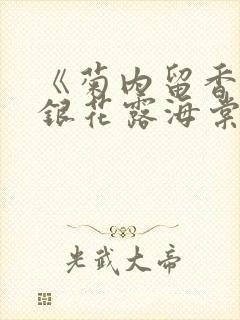 《菊内留香
銀花露海棠
光武大帝